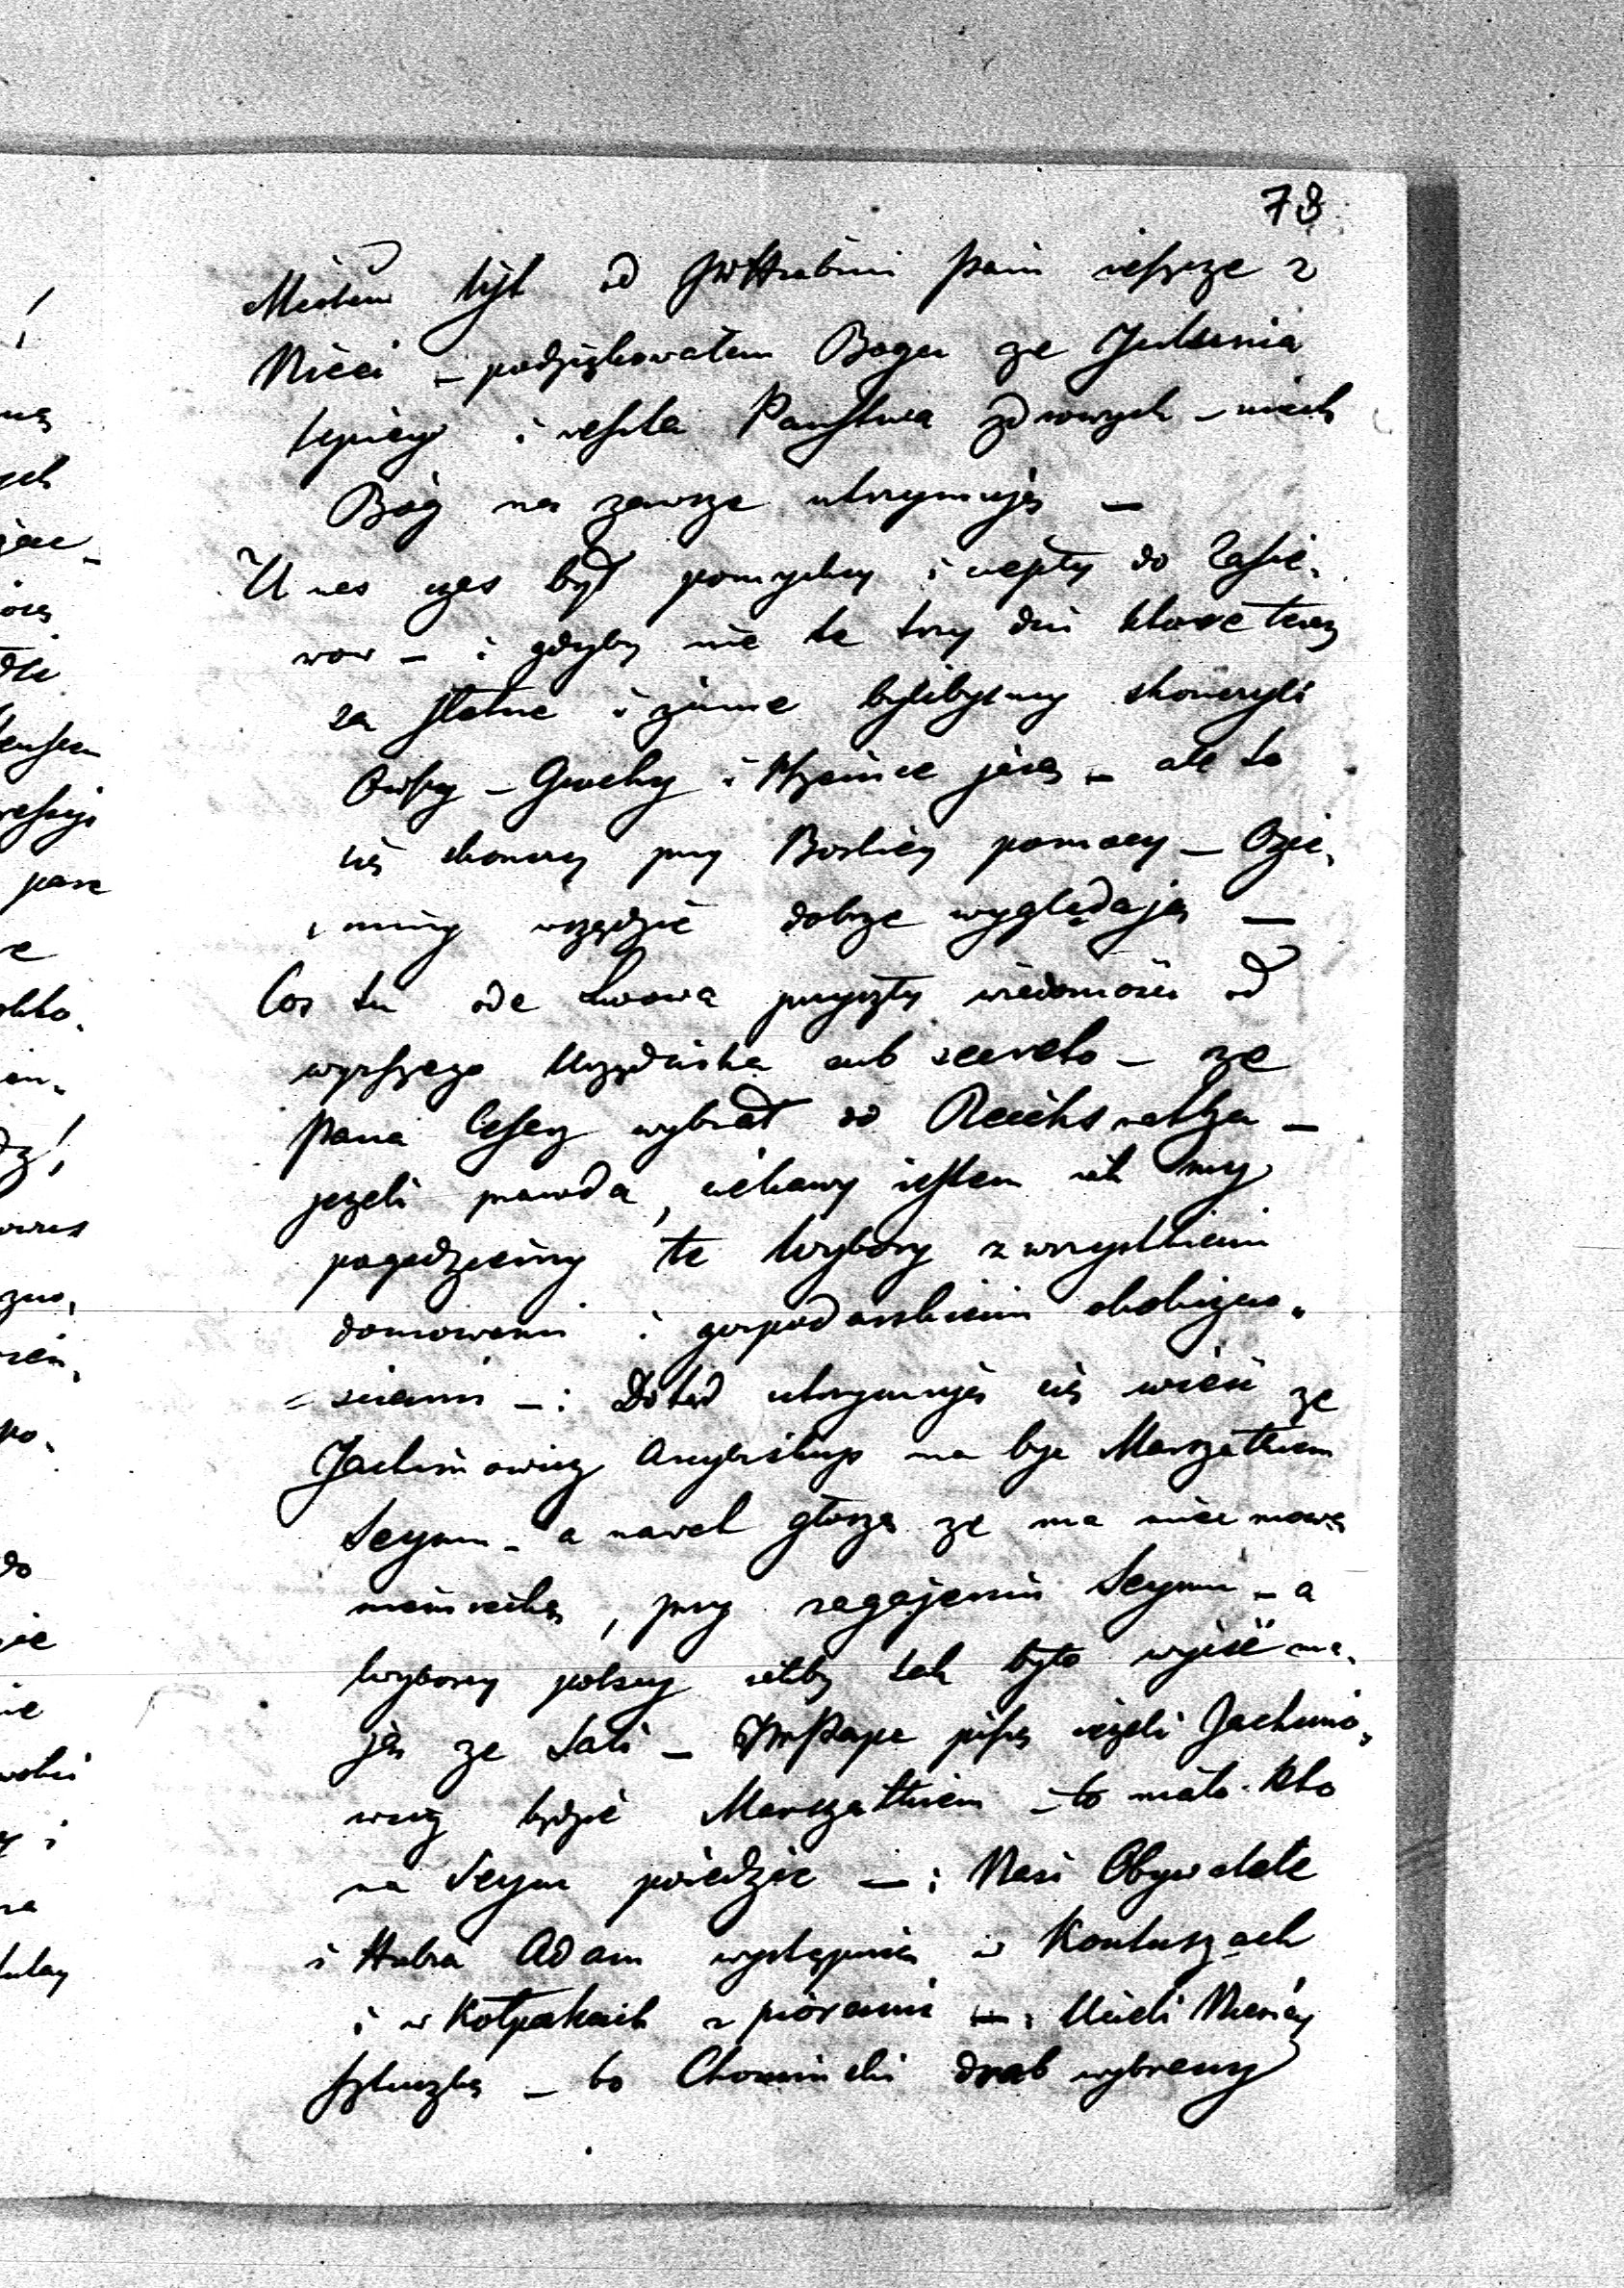 78
Miałem list od JW Hrabini Pani ieszcze z
Nicei – podziękowałem Bogu ze Julunia
lepiey i reszta Państwa zdrowych – niech
Bóg na zawsze utrzymuje –
U nas czas był pomyslny i ciepły do Zasie,
wow – i gdyby nie te trzy dni ktore teraz
za słotne i zimne bylibysmy skonczyli
Owsy – Grochy i Pszenice jarą – ale to
się skonczy przy Boskiey pomocy – Ozie,
, miny wszędzie dobrze wyglądają –
Cos tu ode Lwowa przyszły wiadomości od
wyzszego Urzędnika sub secreto – ze
Pana Cesarz wybrał do Reichsrathu –
jezeli prawda, ciekawy iestem iak my
pogodziemy te Wybory z wszystkiemi
domowemi i gospodarskiemi okoliczno,
= sciami – : Dotąd utrzymuje się wieść ze
Jachimowicz Arcybiskup ma byc Marszałkiem
Seymu – a nawet głoszą ze ma miec mowę
niemiecką, przy zagajeniu Seymu – a
Wyborcy polscy iezliby tak było wyiść ma,
ją ze Sali – pisze iezeli Jachimo,
wicz będzie Marszałkiem – to mało kto
na Seym poiedzie – : Nasi Obywatele
i Hrabia Adam wystąpią w Kontuszach
i w Kołpakach z piórami – :
sztuczkę – bo drab wybrany